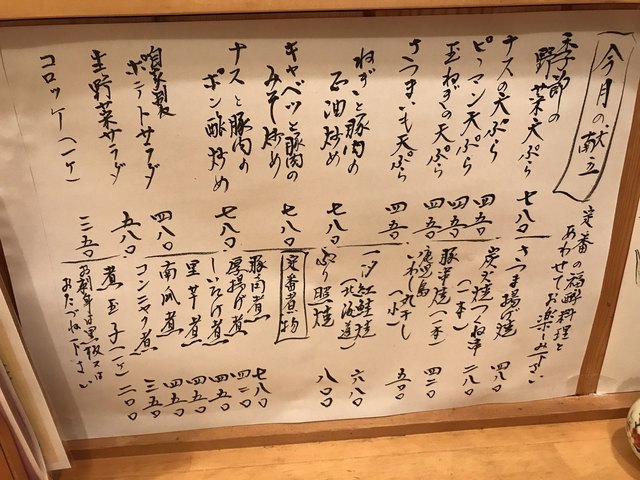 今月の献立
定番の福酔料理と
あわせてお楽しみ下さい
季節の
野菜天ぷら 七八〇
ナスの天ぷら 四五〇
ピーマン天ぷら 四五〇
玉ねぎの天ぷら 四五〇
さつまいも天ぷら 四五〇
ねぎと豚肉の
正油炒め 七八〇
キャベツと豚肉の
みそ炒め 七八〇
ナスと豚肉の
ポン酢炒め 七八〇
自家製
ポテトサラダ 四八〇
生野菜サラダ 五八〇
コロッケ(一ケ) 三五〇
さつま揚げ焼 四八〇
炭火焼つくね串
(一本) 二八〇
豚串焼(一本) 四二〇
鹿児島
いわし丸干し(小) 五〇〇
一汐紅鮭焼
(北海道) 六八〇
ぶり照焼 八〇〇
定番煮物
豚角煮 七八〇
厚揚げ煮 四二〇
しいたけ煮 四五〇
里芋煮 四五〇
南瓜煮 四五〇
コンニャク煮 三五〇
煮玉子(一ケ) 二〇〇
お刺身は黒板又は
おたづね下さい